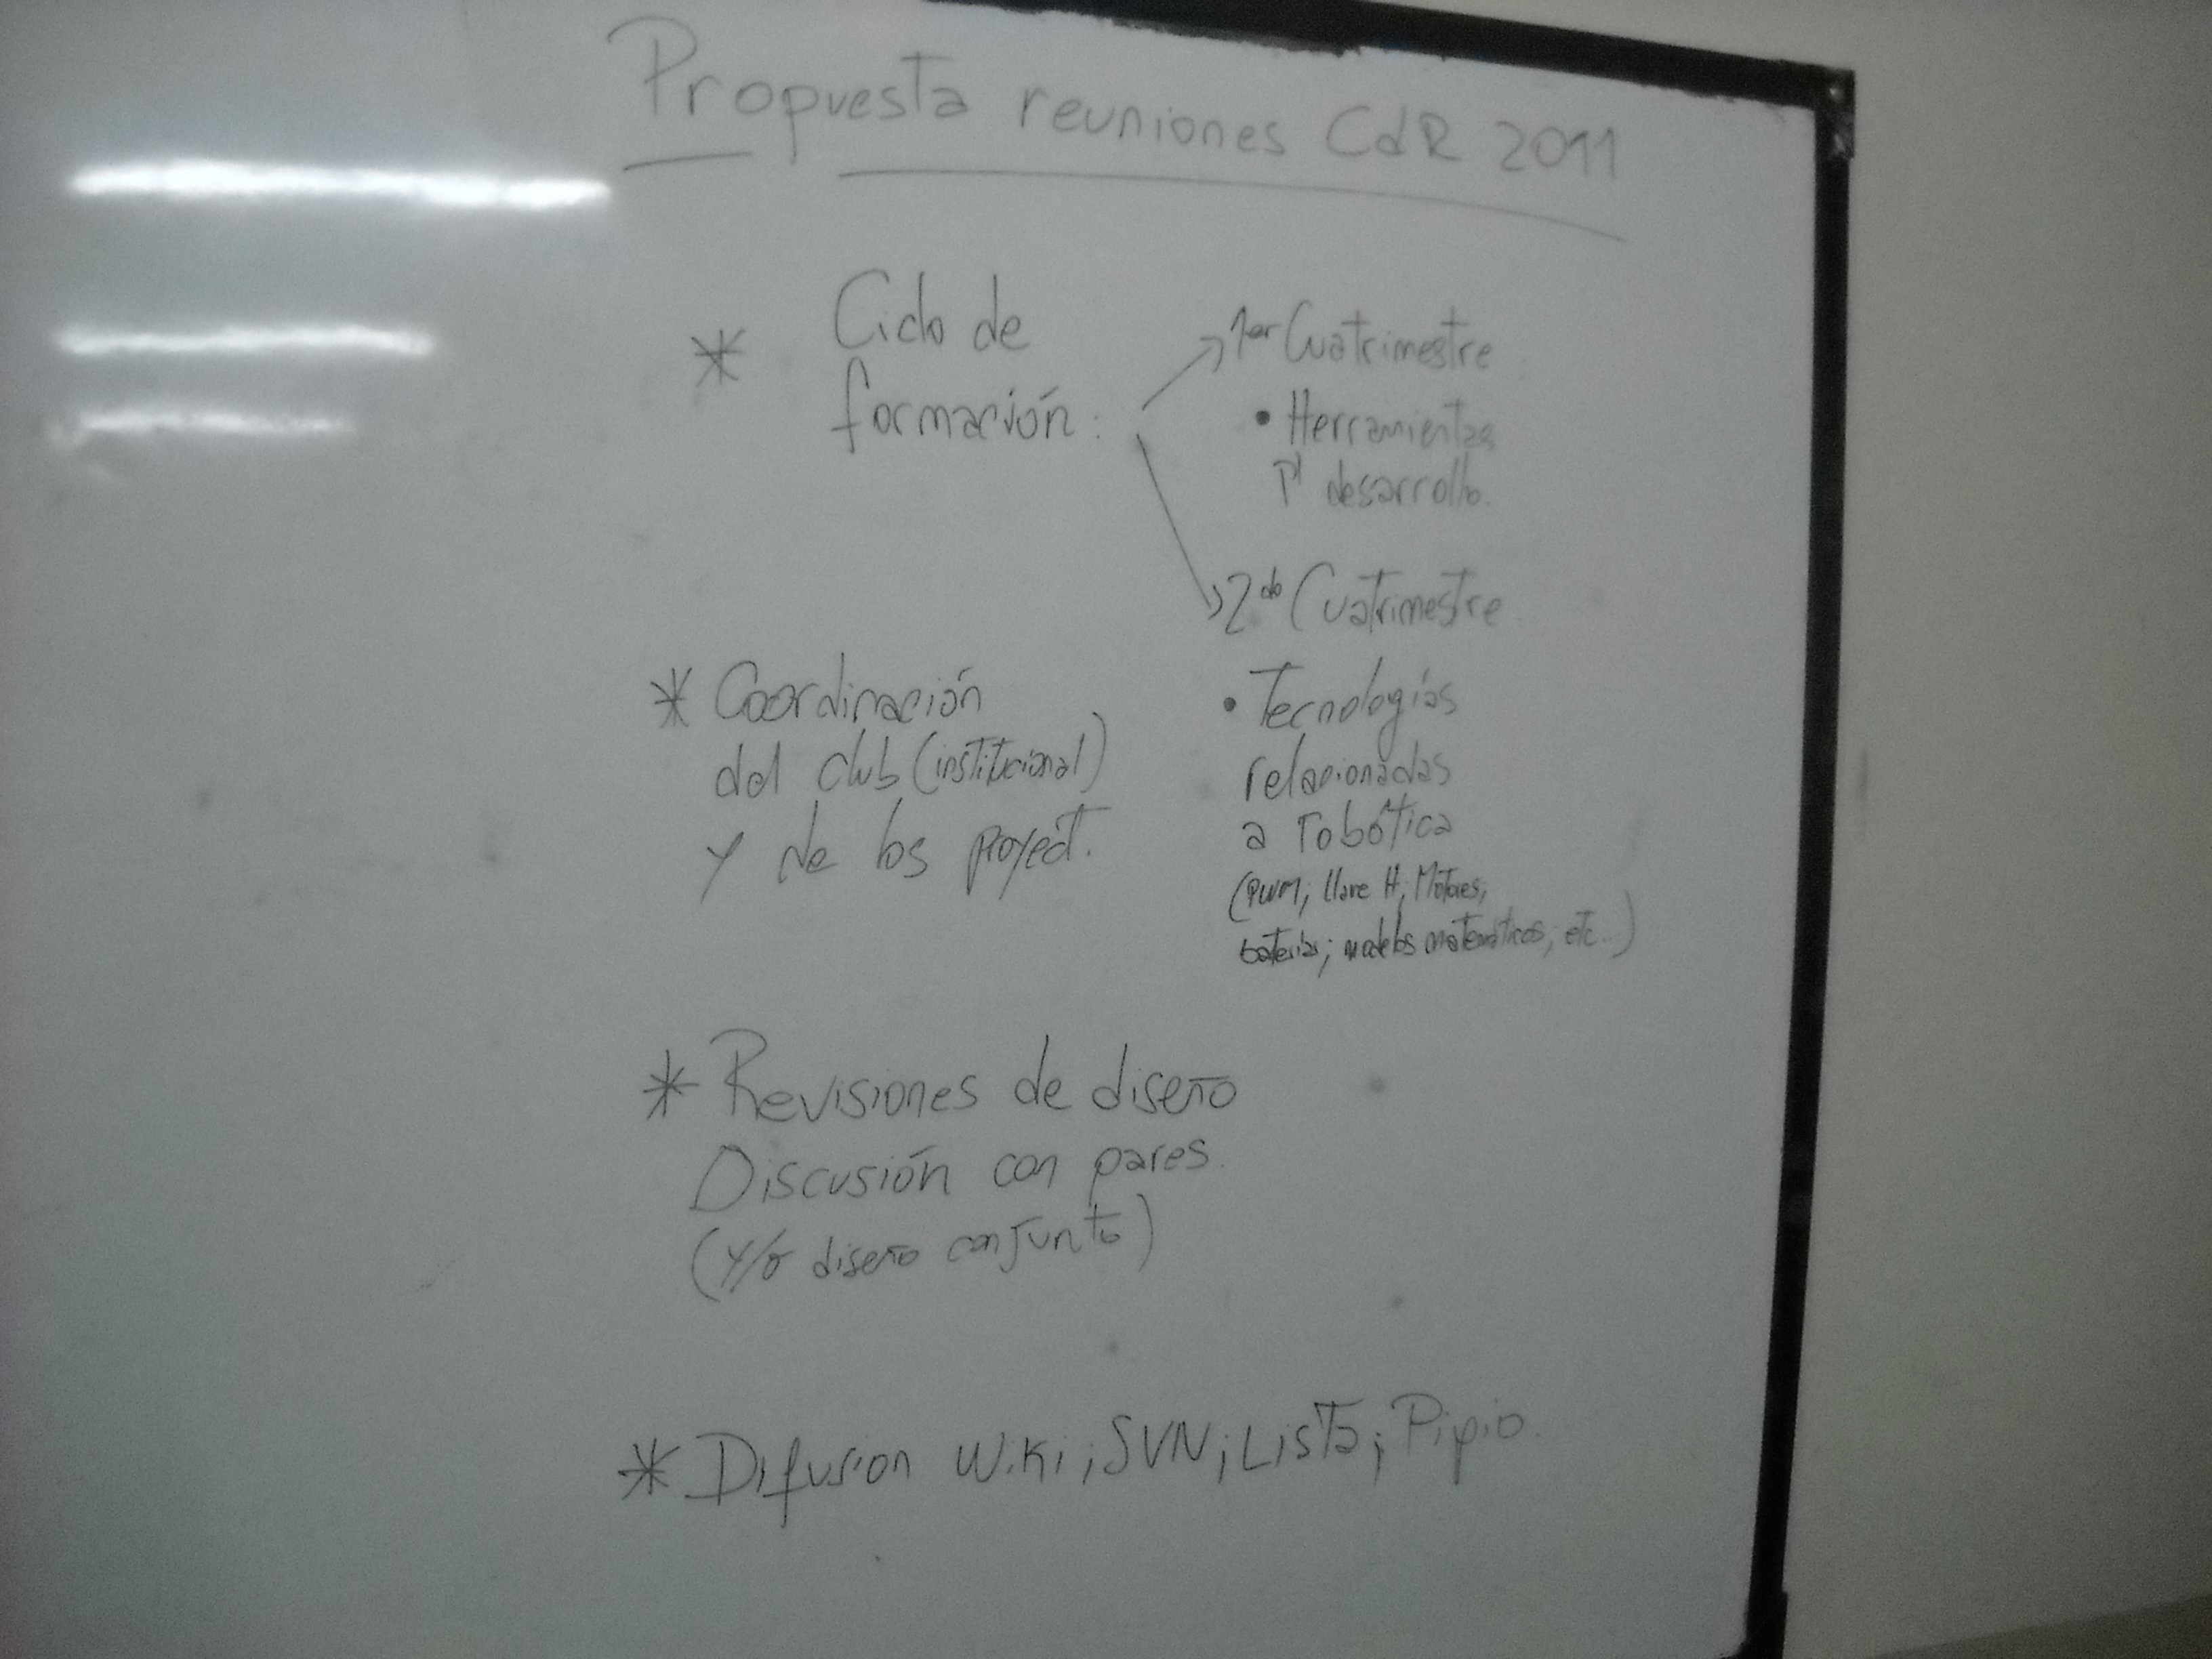 Propuesta reuniones CdR 2011
* Ciclo de
formación:
1er Cuatrimestre
• Herramientas
P' desarrollo.
2do Cuatrimestre
• Tecnologías
relacionadas
a robótica
(PWM; llave H; Motores;
baterías; modelos matemáticos; etc..)
* Coordinación
del club (institucional)
y de los proyect.
* Revisiones de diseño
Discusión con pares.
(y/o diseño conjunto)
* Difusion Wiki; SVN; Lista; Pipio.